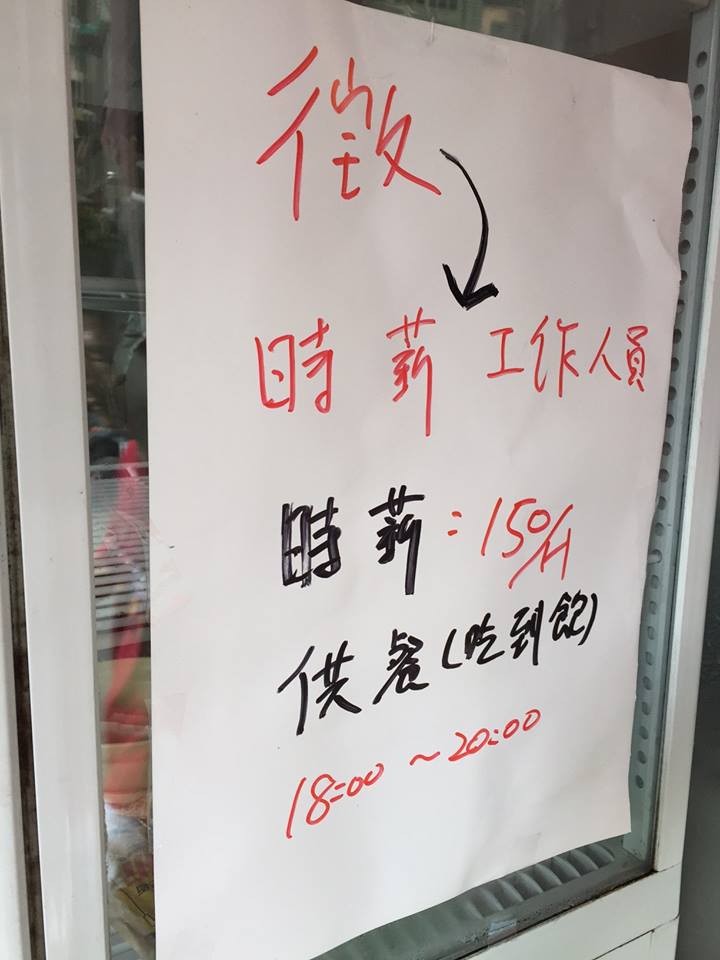 徵
時薪工作人員
時薪:150/H
供餐(吃到飽)
18:00~20:00